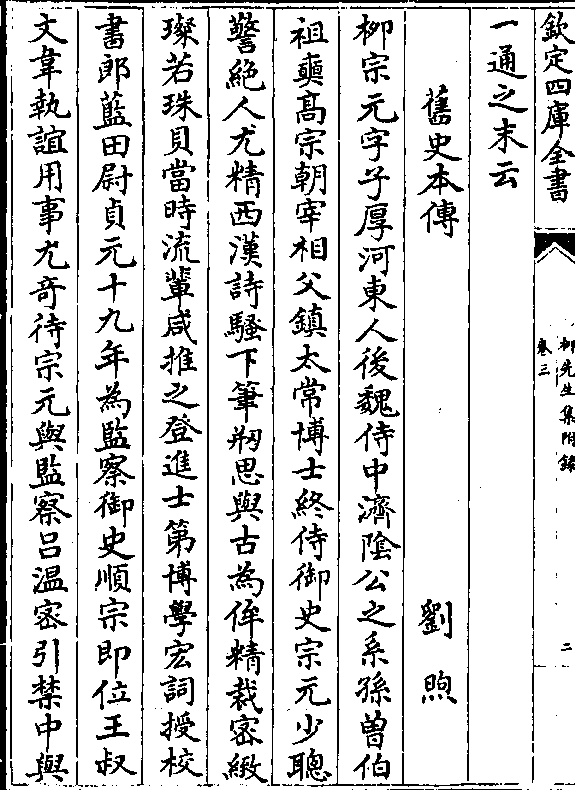 欽定四庫全書
柳先生集附録
卷三
二
一通之末云
舊史本傳
劉煦
柳宗元字子厚河東人後魏侍中濟陰公之系孫曾伯
祖奭髙宗朝宰相父鎮太常博士終侍御史宗元少聰
警絶人尤精西漢詩騷下筆搆思與古為侔精裁宻緻
璨若珠貝當時流輩咸推之登進士第博學宏詞授校
書郎藍田尉貞元十九年為監察御史順宗即位王叔
文韋執誼用事尤竒待宗元與監察吕温宻引禁中與